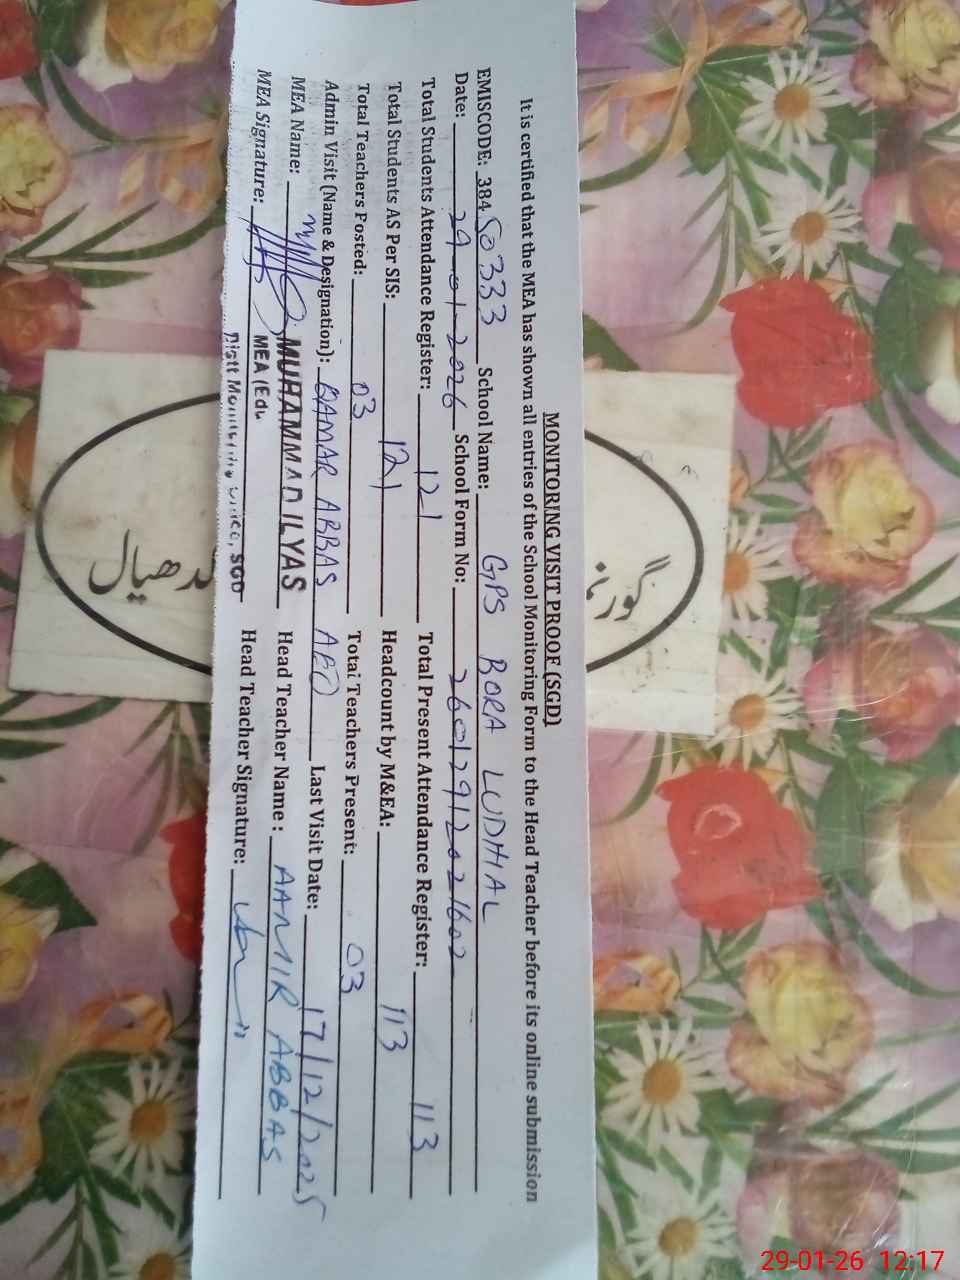 MONITORING VISIT PROOF (SGD)
It is certified that the MEA has shown all entries of the School Monitoring Form to the Head Teacher before its online submission
EMISCODE: 384 50333 School Name: GPS BORA LUDHIAL
Date: 29-01-2026 School Form No: 26012912021602
Total Students Attendance Register: 121 Total Present Attendance Register: 113
Total Students AS Per SIS: 121 Headcount by M&EA: 113
Total Teachers Posted: 03 Total Teachers Present: 03
Admin Visit (Name & Designation): QAMAR ABBAS AEO Last Visit Date: 17/12/2025
MEA Name: MUHAMMAD ILYAS Head Teacher Name: AAMIR ABBAS
MEA Signature: MEA (Edu Head Teacher Signature:
Distt Monitoring Office, SGD
گورنمنٹ
لدھیال
29-01-26 12:17